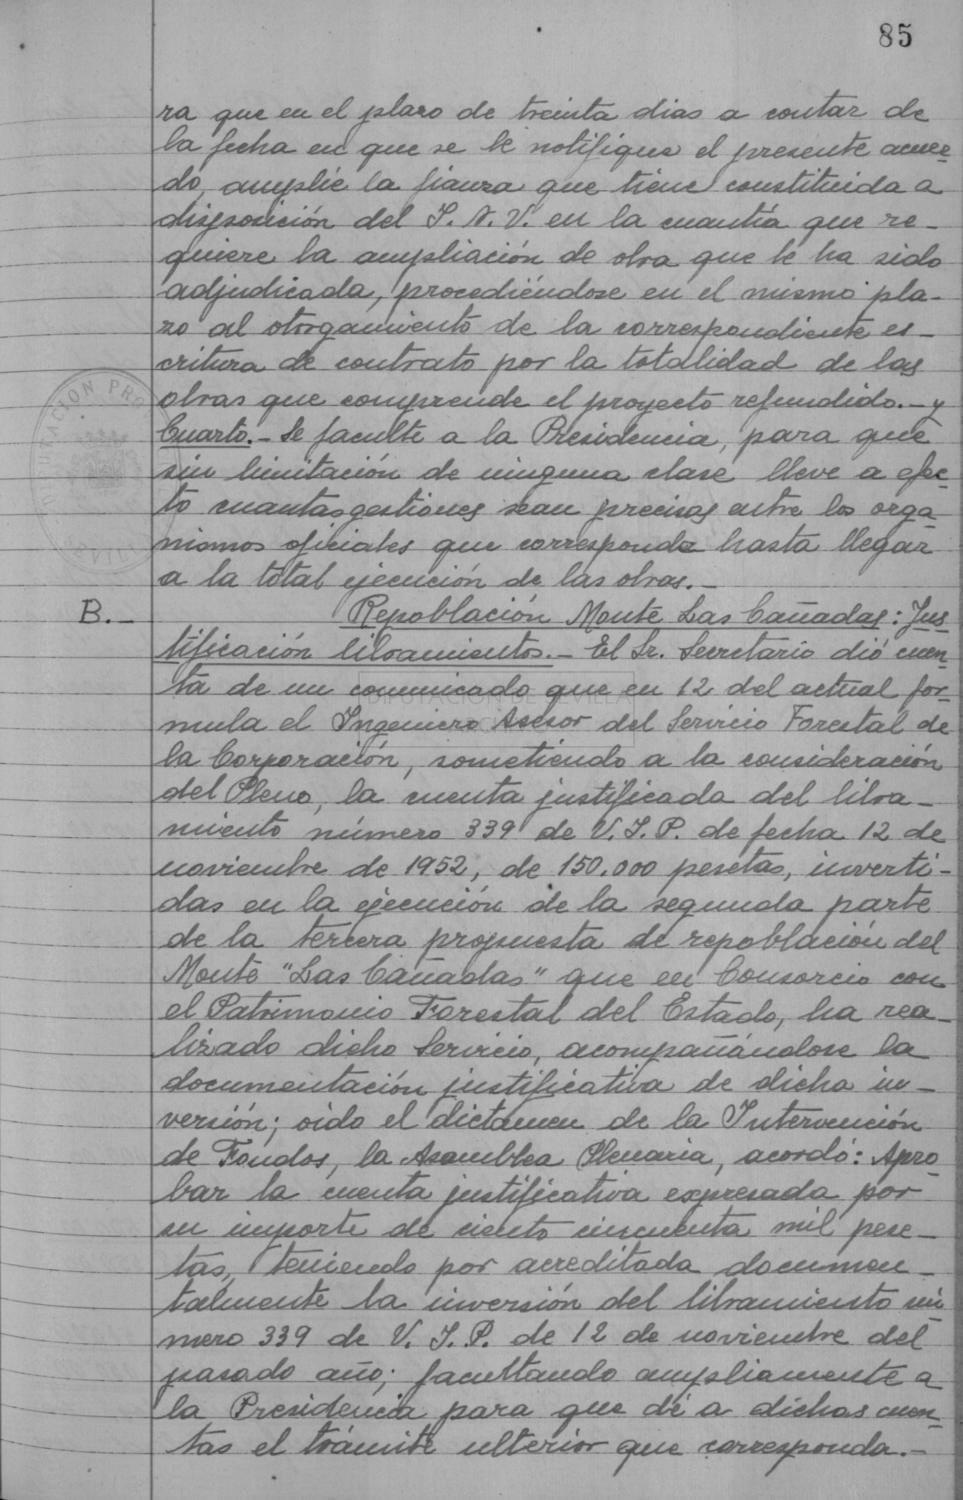 85
ra que en el plazo de treinta dias a contar de
la fecha en que se le notifique el presente acuer-
do, amplíe la fianza que tiene constituida a
disposición del I. N. V. en la cuantía que re-
quiere la ampliación de obra que le ha sido
adjudicada, procediéndose en el mismo pla-
zo al otorgamiento de la correspondiente es-
critura de contrato por la totalidad de las
obras que comprende el proyecto refundido.- y
Cuarto.- Se faculte a la Presidencia, para que
sin limitación de ninguna clase lleve a efec-
to cuantas gestiones sean precisas entre los orga-
nismos oficiales que corresponda hasta llegar
a la total ejecución de las obras.-
B.- Repoblación Monte Las Cañadas: Jus-
tificación libramientos.- El Sr. Secretario dió cuen-
ta de un comunicado que en 12 del actual for-
mula el Ingeniero Asesor del Servicio Forestal de
la Corporación, sometiendo a la consideración
del Pleno, la cuenta justificada del libra-
miento número 339 de V. I. P. de fecha 12 de
noviembre de 1952, de 150.000 pesetas, inverti-
das en la ejecución de la segunda parte
de la tercera propuesta de repoblación del
Monte "Las Cañadas" que en Consorcio con
el Patrimonio Forestal del Estado, ha rea-
lizado dicho Servicio, acompañándose la
documentación justificativa de dicha in-
versión; oido el dictámen de la Intervención
de Fondos, la Asamblea Plenaria, acordó: Apro-
bar la cuenta justificativa expresada por
su importe de ciento cincuenta mil pese-
tas, teniendo por acreditada documen-
talmente la inversión del libramiento nú-
mero 339 de V. I. P. de 12 de noviembre del
pasado año; facultando ampliamente a
la Presidencia para que dé a dichas cuen-
tas el trámite ulterior que corresponda.-
DIPUTACION DE SEVILLA